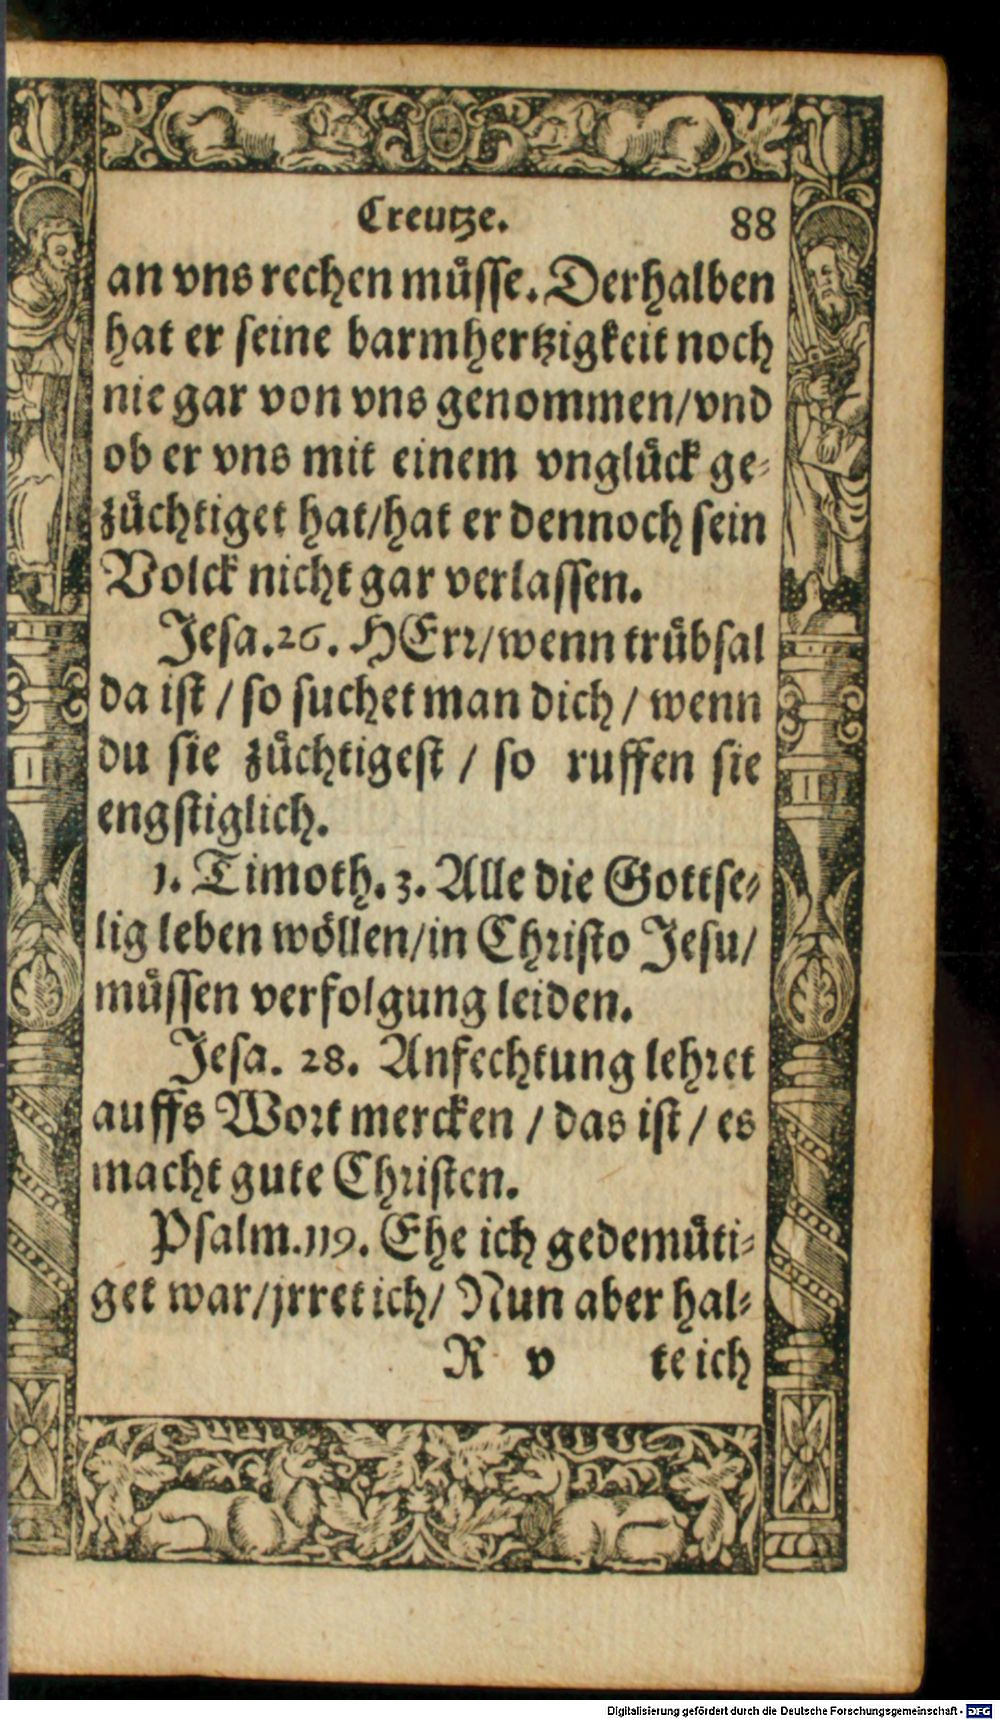 Creutze. 88
an vns rechen müſſe. Derhalben
hat er ſeine barmhertzigkeit noch
nie gar von vns genommen/vnd
ob er vns mit einem vnglück ge-
züchtiget hat/hat er dennoch ſein
Volck nicht gar verlaſſen.
Jeſa. 26. HErr/wenn trübſal
da iſt / ſo ſuchet man dich / wenn
du ſie züchtigeſt / ſo ruffen ſie
engſtiglich.
1. Timoth. 3. Alle die Gottſe-
lig leben wöllen/in Chriſto Jeſu/
müſſen verfolgung leiden.
Jeſa. 28. Anfechtung lehret
auffs Wort mercken / das iſt / es
macht gute Chriſten.
Pſalm. 119. Ehe ich gedemüti-
get war/jrret ich/ Nun aber hal-
R v te ich
Digitalisierung gefördert durch die Deutsche Forschungsgemeinschaft - DFG